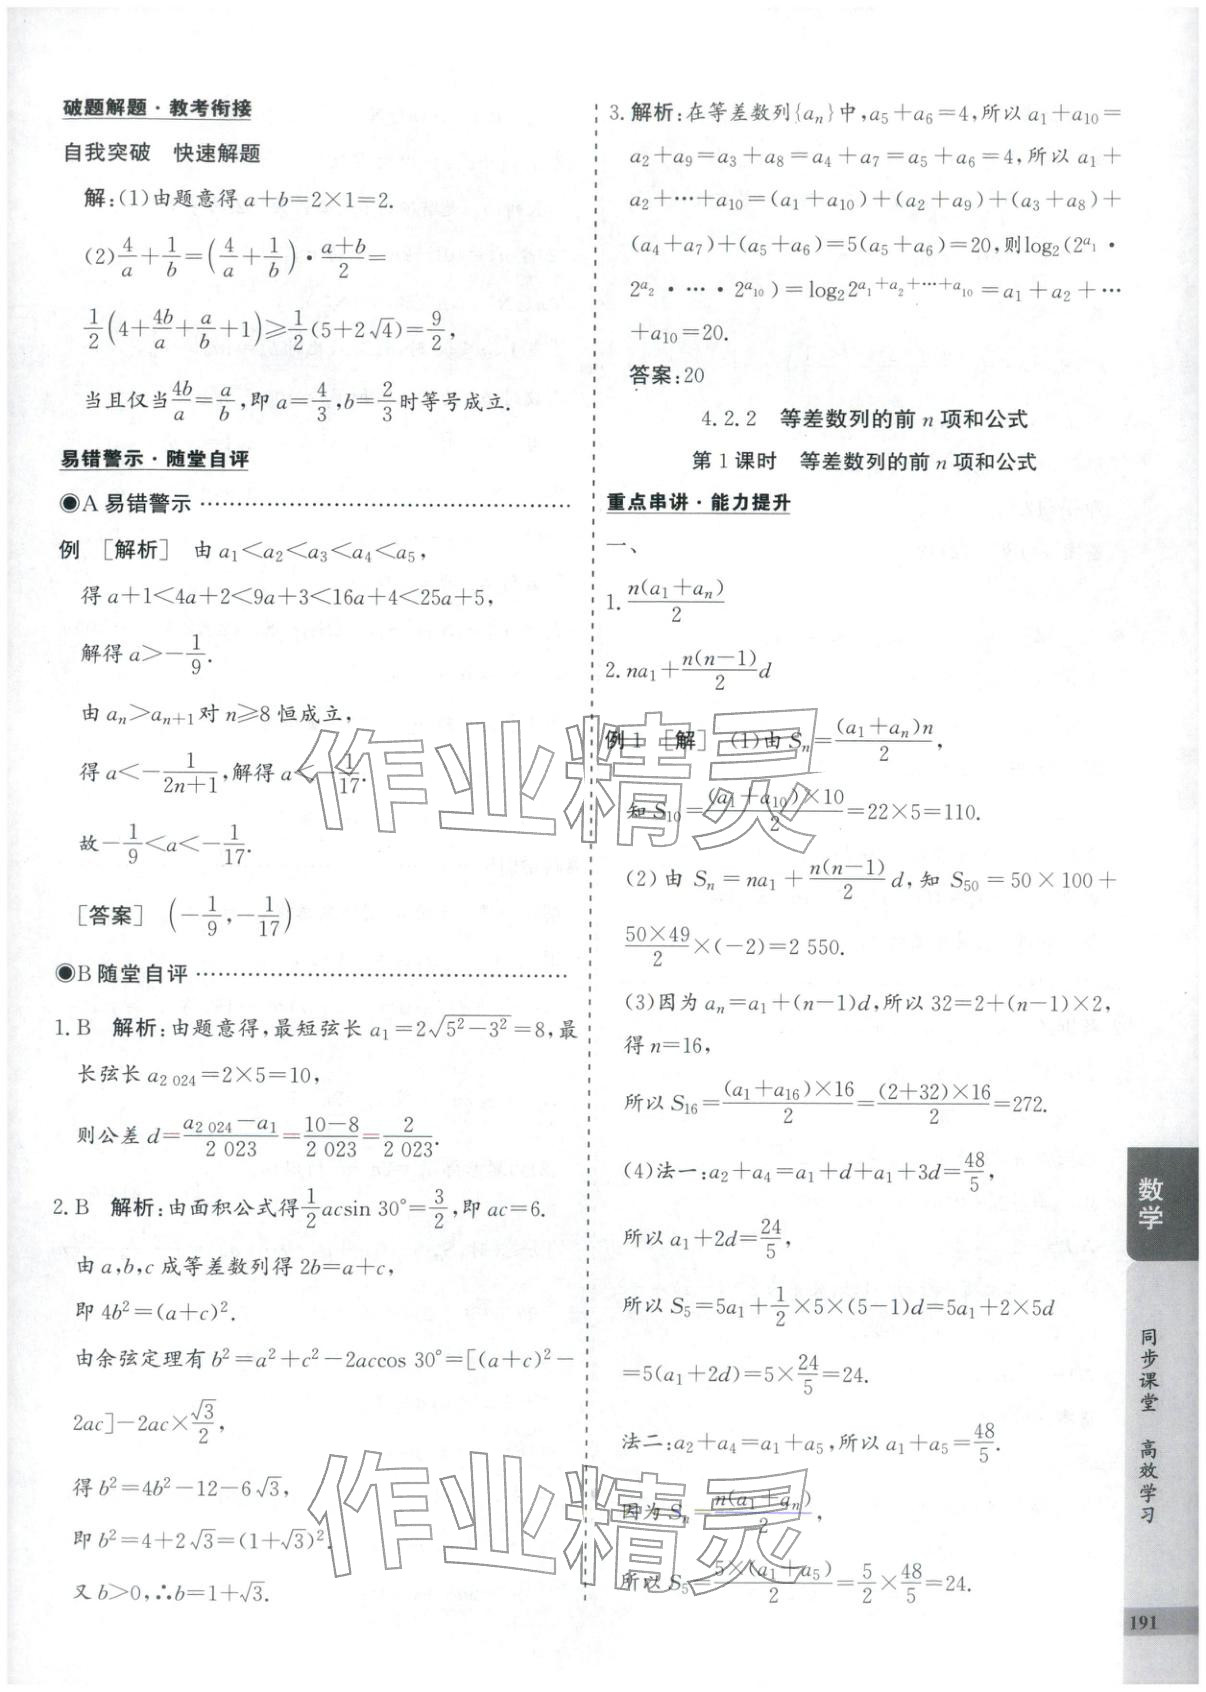 破题解题·教考衔接
自我突破 快速解题
解:(1)由题意得 a+b=2×1=2.
(2)4/a+1/b=(4/a+1/b)·(a+b)/2=
1/2(4+4b/a+a/b+1)≥1/2(5+2√4)=9/2,
当且仅当4b/a=a/b,即 a=4/3,b=2/3时等号成立.
易错警示·随堂自评
◉A 易错警示
例 [解析] 由 a₁<a₂<a₃<a₄<a₅,
得 a+1<4a+2<9a+3<16a+4<25a+5,
解得 a>-1/9.
由 aₙ>aₙ₊₁对 n≥8 恒成立,
得 a<-1/(2n+1),解得 a<-1/17.
故-1/9<a<-1/17.
[答案] (-1/9,-1/17)
◉B 随堂自评
1. B 解析:由题意得,最短弦长 a₁=2√(5²-3²)=8,最
长弦长 a₂ ₀₂₄=2×5=10,
则公差 d=(a₂ ₀₂₄-a₁)/2 023=(10-8)/2 023=2/2 023.
2. B 解析:由面积公式得1/2acsin 30°=3/2,即 ac=6.
由 a,b,c 成等差数列得 2b=a+c,
即 4b²=(a+c)².
由余弦定理有 b²=a²+c²-2accos 30°=[(a+c)²-
2ac]-2ac×√3/2,
得 b²=4b²-12-6√3,
即 b²=4+2√3=(1+√3)².
又 b>0,∴b=1+√3.
3. 解析:在等差数列{aₙ}中,a₅+a₆=4,所以 a₁+a₁₀=
a₂+a₉=a₃+a₈=a₄+a₇=a₅+a₆=4,所以 a₁+
a₂+⋯+a₁₀=(a₁+a₁₀)+(a₂+a₉)+(a₃+a₈)+
(a₄+a₇)+(a₅+a₆)=5(a₅+a₆)=20,则log₂(2^a₁·
2^a₂·⋯·2^a₁₀)=log₂2^(a₁+a₂+⋯+a₁₀)=a₁+a₂+⋯
+a₁₀=20.
答案:20
4.2.2 等差数列的前 n 项和公式
第 1 课时 等差数列的前 n 项和公式
重点串讲·能力提升
一、
1. n(a₁+aₙ)/2
2. na₁+n(n-1)/2 d
例 1 [解] (1)由 Sₙ=(a₁+aₙ)n/2,
知 S₁₀=(a₁+a₁₀)×10/2=22×5=110.
(2)由 Sₙ=na₁+n(n-1)/2 d,知 S₅₀=50×100+
50×49/2×(-2)=2 550.
(3)因为 aₙ=a₁+(n-1)d,所以 32=2+(n-1)×2,
得 n=16,
所以 S₁₆=(a₁+a₁₆)×16/2=(2+32)×16/2=272.
(4)法一:a₂+a₄=a₁+d+a₁+3d=48/5,
所以 a₁+2d=24/5,
所以 S₅=5a₁+1/2×5×(5-1)d=5a₁+2×5d
=5(a₁+2d)=5×24/5=24.
法二:a₂+a₄=a₁+a₅,所以 a₁+a₅=48/5.
因为 Sₙ=n(a₁+aₙ)/2,
所以 S₅=5×(a₁+a₅)/2=5/2×48/5=24.
数学
同步课堂 高效学习
191
作业精灵
作业精灵